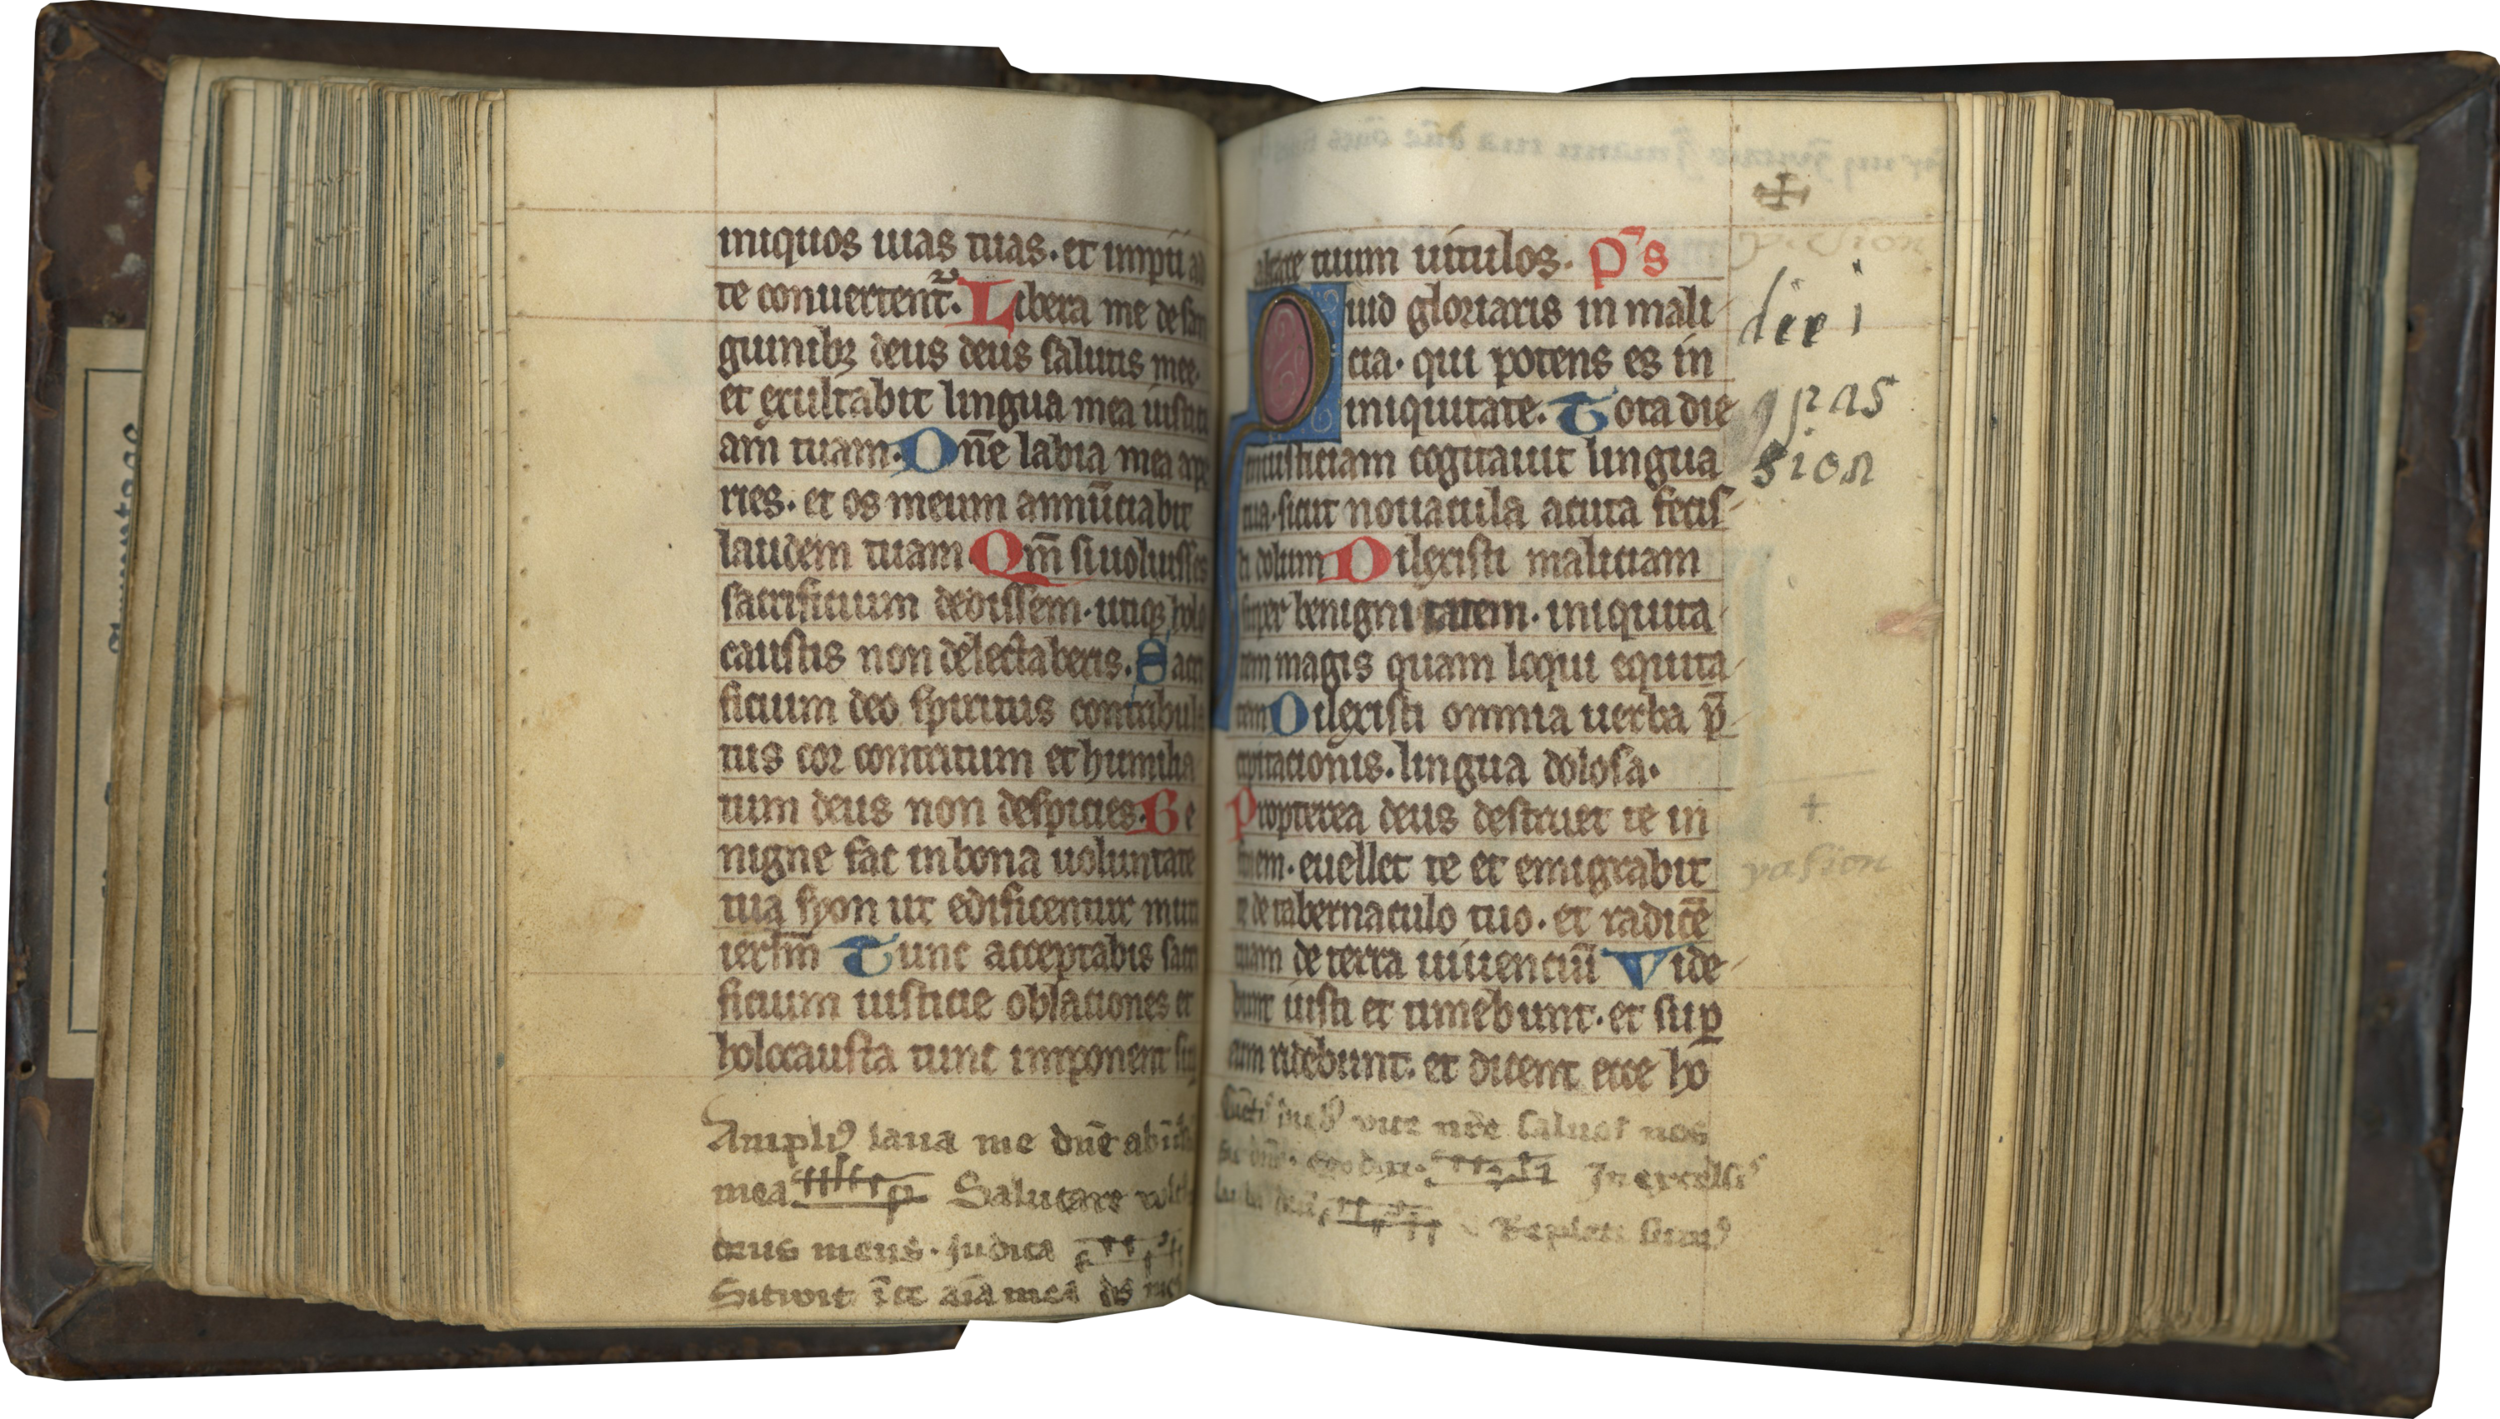 iniquos uias tuas. et impii ad
te conuertent᷑. Libera me de san
guinibꝫ deus deus salutis mee.
et exultabit lingua mea iustici
am tuam. Dn̄e labia mea ape
ries. et os meum annūciabit
laudem tuam Qm̄ si uoluisses
sacrificium dedissem. utiqꝫ holo
caustis non delectaberis. Sacri
ficium deo spiritus contribula
tus cor contritum et humilia
tum deus non despicies. Be
nigne fac in bona uoluntate
tua syon ut edificentur muri
ierlm̄ Tunc acceptabis sacri
ficium iusticie oblationes et
holocausta tunc imponent sup
Ampliꝰ laua me dn̄e ab
mea Salutare
deus meus. Judica
Sitiuit aīa mea
altare tuum uitulos. P̄s
Quid gloriaris in mali
cia. qui potens es in
iniquitate. Tota die
iniusticiam cogitauit lingua
tua. sicut nouacula acuta fecis
ti dolum Dilexisti maliciam
super benignitatem. iniquita
tem magis quam loqui equita
tem Dilexisti omnia uerba p̄
cipitacionis. lingua dolosa.
Propterea deus destruet te in
finem. euellet te et emigrabit
te de tabernaculo tuo. et radicē
tuam de terra uiuenciū Vide
bunt iusti et timebunt. et suꝑ
eum ridebunt. et dicent ecce ho
pas
sion
pasion
vite nr̄e saluos nos
In excelsis
Repleti sumꝰ